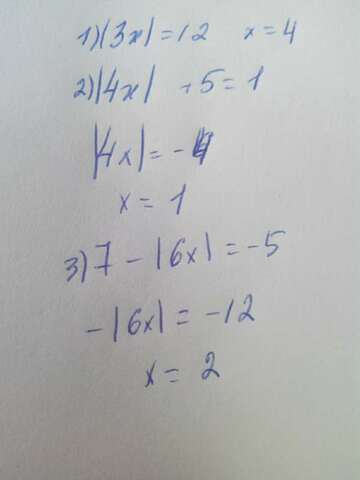 1) |3x| = 12 x = 4
2) |4x| + 5 = 1
|4x| = -4
x = 1
3) 7 - |6x| = -5
-|6x| = -12
x = 2